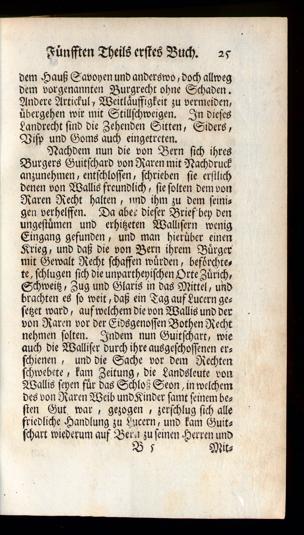 Fünfften Theils erstes Buch. 25
dem Hauß Savoyen und anderswo, doch allweg
dem vorgenannten Burgrecht ohne Schaden.
Andere Artickul, Weitläuffigkeit zu vermeiden,
übergehen wir mit Stillschweigen. In dieses
Landrecht sind die Zehenden Sitten, Siders,
Visp und Goms auch eingetretten.
Nachdem nun die von Bern sich ihres
Burgers Guitschard von Raren mit Nachdruck
anzunehmen, entschlossen, schrieben sie erstlich
denen von Wallis freundlich, sie solten dem von
Raren Recht halten, und ihm zu dem seini-
gen verhelffen. Da aber dieser Brief bey den
ungestümen und erhitzten Wallisern wenig
Eingang gefunden, und man hierüber einen
Krieg, und daß die von Bern ihrem Bürger
mit Gewalt Recht schaffen würden, beförchte-
te, schlugen sich die unpartheyischen Orte Zürich,
Schweitz, Zug und Glaris in das Mittel, und
brachten es so weit, daß ein Tag auf Lucern ge-
setzet ward, auf welchem die von Wallis und der
von Raren vor der Eidsgenossen Bothen Recht
nehmen solten. Indem nun Guitschart, wie
auch die Walliser durch ihre ausgeschossenen er-
schienen, und die Sache vor dem Rechten
schwebete, kam Zeitung, die Landsleute von
Wallis seyen für das Schloß Seon, in welchem
des von Raren Weib und Kinder samt seinem be-
sten Gut war, gezogen, zerschlug sich alle
friedliche Handlung zu Lucern, und kam Guit-
schart wiederum auf Bern zu seinen Herren und
B 5 Mit-